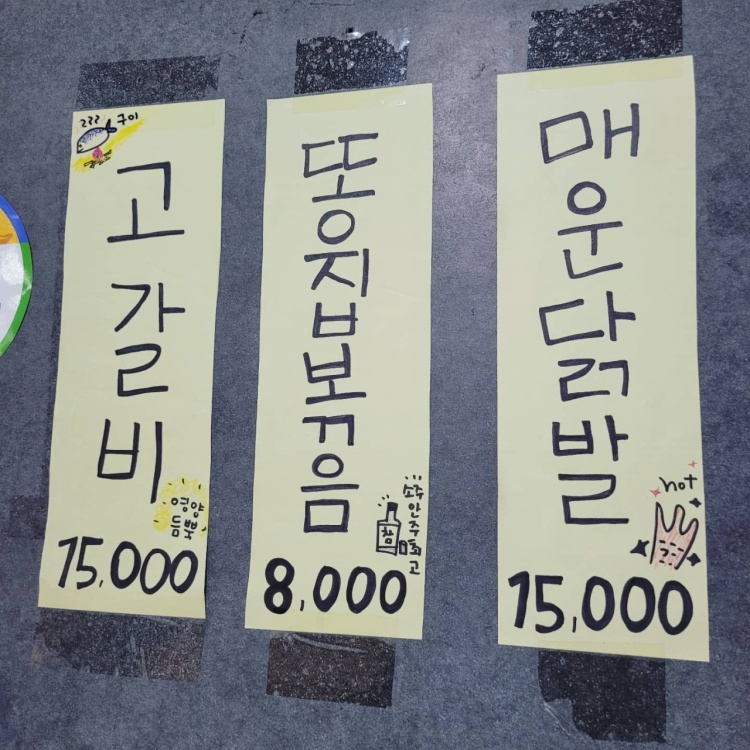 ㄹㄹㄹ 구이
고갈비
영양
듬뿍
15,000
똥집볶음
소주안주최고
참
8,000
매운닭발
hot
15,000